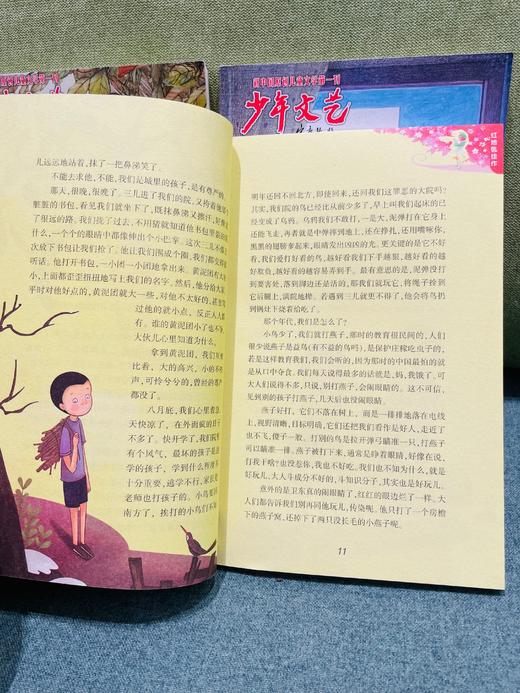 新中国原创儿童文学第一刊
新中国原创儿童文学第一刊
少年文艺
儿远远地站着，抹了一把鼻涕笑了。
不能去求他，不能，我们是城里的孩子，是有尊严的。
那天，很晚，很晚了。三儿进了我们的院，又挎着
脏脏的书包，看见我们就坐下了，既抹鼻涕又擦汗，好像
了很远的路。我们拢了过去，不用猜就知道他书包里装的
什么，一个个的眼睛中都像伸出个小巴掌。这次三儿不像
次放下书包让我们抢了。他让我们围成个圈，我们都变
听话。他打开书包，一小团一小团地拿出来。黄泥团有大
小，上面都歪歪扭扭地写上我们的名字。然后，他分给大
平时对他好点的，黄泥团就大一些，对他不太好的，甚至
过他的就小点。反正人人都
有。谁的黄泥团小了也不争，
大伙儿心里知道为什么。
拿到黄泥团，我们互
比着。大的高兴，小的不
声，可怜兮兮的，曾经的
都没了。
八月底，我们心里着急，
天快凉了，在外面疯的日
不多了。快开学了，我们院
有个风气，最坏的孩子是逃
学的孩子，学到什么程度不
十分重要，逃学不行，家长
老师也打孩子的。小鸟要
南方了，挨打的小鸟们不
红地毯佳作
明年还回不回北方，即使回来，还回我们这罪恶的大院吗？
其实，我们院的鸟已经比从前少多了，早上叫我们起床的已
经变成了乌鸦。乌鸦我们不敢打，一是大，泥弹打在它身上
还能飞走，二是射中弹掉到地上，它还在挣扎，还用嘴啄你，
黑黑的翅膀拿起来，眼睛发出凶凶的光。更关键的是它不好
看，我们是越打好看的鸟，越好看我们下手越狠，越好看的越
好欺负，越好看的越容易弄到手。最有意思的是，泥弹没打
到要害处，落到周边还活着的，我们就玩它，将绳子拴到
它后腿上，满院地梭。若遇到三儿就更不得了，他会将鸟扔
到锅灶下烧着给吃了。
那个年代，我们是怎么了？
小鸟少了，我们就打燕子，那时的教育很民间的，人们
很少说燕子是益鸟（有不益的鸟吗），是保护庄稼吃虫子的，
若是这样教育我们，我们会听的，因为那时的中国最怕的就
是从口中夺食。我们每天说得最多的话就是，妈，我饿了。可
大人们说得不多，只说，别打燕子，会闹眼睛。这不可信，
见到别的孩子打燕子，几天后也没闹眼睛。
燕子好打，它们不落在树上，而是一排排地落在电线
上，视野清晰，目标明确，它们还把我们看作是好人，走近了
也不飞，傻子一般。打别的鸟是拉开弹弓瞄准一只，打燕子
可以瞄准一排。燕子被打下来，通常是睁着眼睛，好像在说，
打我干啥？也没惹你，我也不好吃。我们也不知为什么，就是
好玩儿，大人斗成分不好的，斗知识分子，其实也是好玩儿。
意外的是卫东真的闹眼睛了，红红的眼边烂了一样。大
人们都告诉我们别再同他玩儿，传染呢。他只打了一个房檐下
的燕子窝，还掉下了两只没长毛的小燕子呢。
11